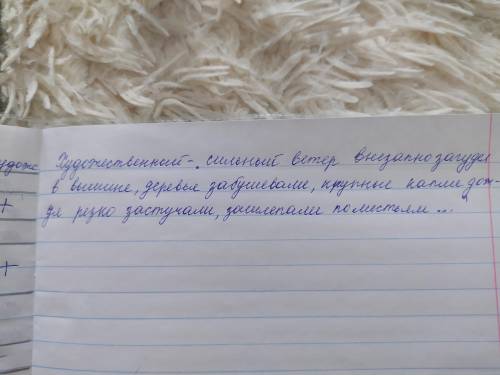 художе
Художественный-. сильный ветер внезапно загудел
в вышине, деревья забушевали, крупные капли дож-
дя резко застучали, зашлепали по листьям...